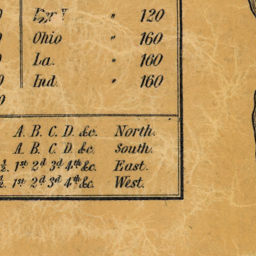 " 120
Ohio " 160
La. " 160
Ind. " 160
A. B. C. D. &c. North.
A. B. C. D. &c. South.
½. 1st 2d 3d 4th &c. East.
½. 1st 2d 3d 4th &c. West.